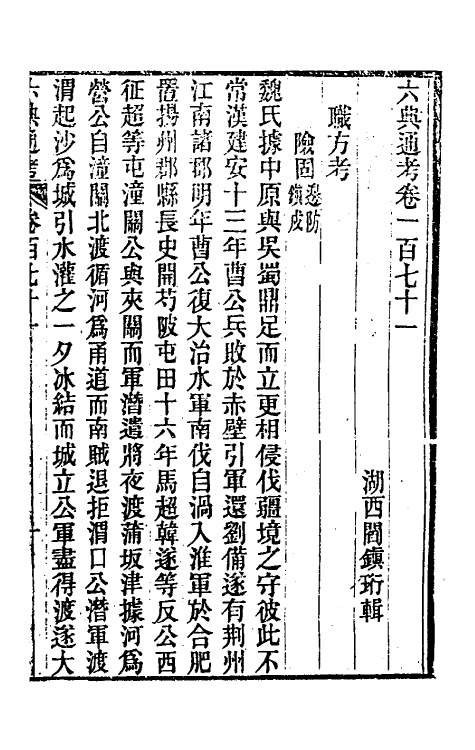 六典通考卷一百七十一
湖西閻鎮珩輯
職方考
險固邊防鎮戍
魏氏據中原與吳蜀鼎足而立更相侵伐疆境之守彼此不
常漢建安十三年曹公兵敗於赤壁引軍還劉備遂有荆州
江南諸郡明年曹公復大治水軍南伐自渦入淮軍於合肥
置揚州郡縣長史開芍陂屯田十六年馬超韓遂等反公西
征超等屯潼關公與夾關而軍潛遣將夜渡蒲坂津據河爲
營公自潼關北渡循河爲甬道而南賊退拒渭口公潛軍渡
渭起沙爲城引水灌之一夕冰結而城立公軍盡得渡遂大
六典通考 卷百七十一 一